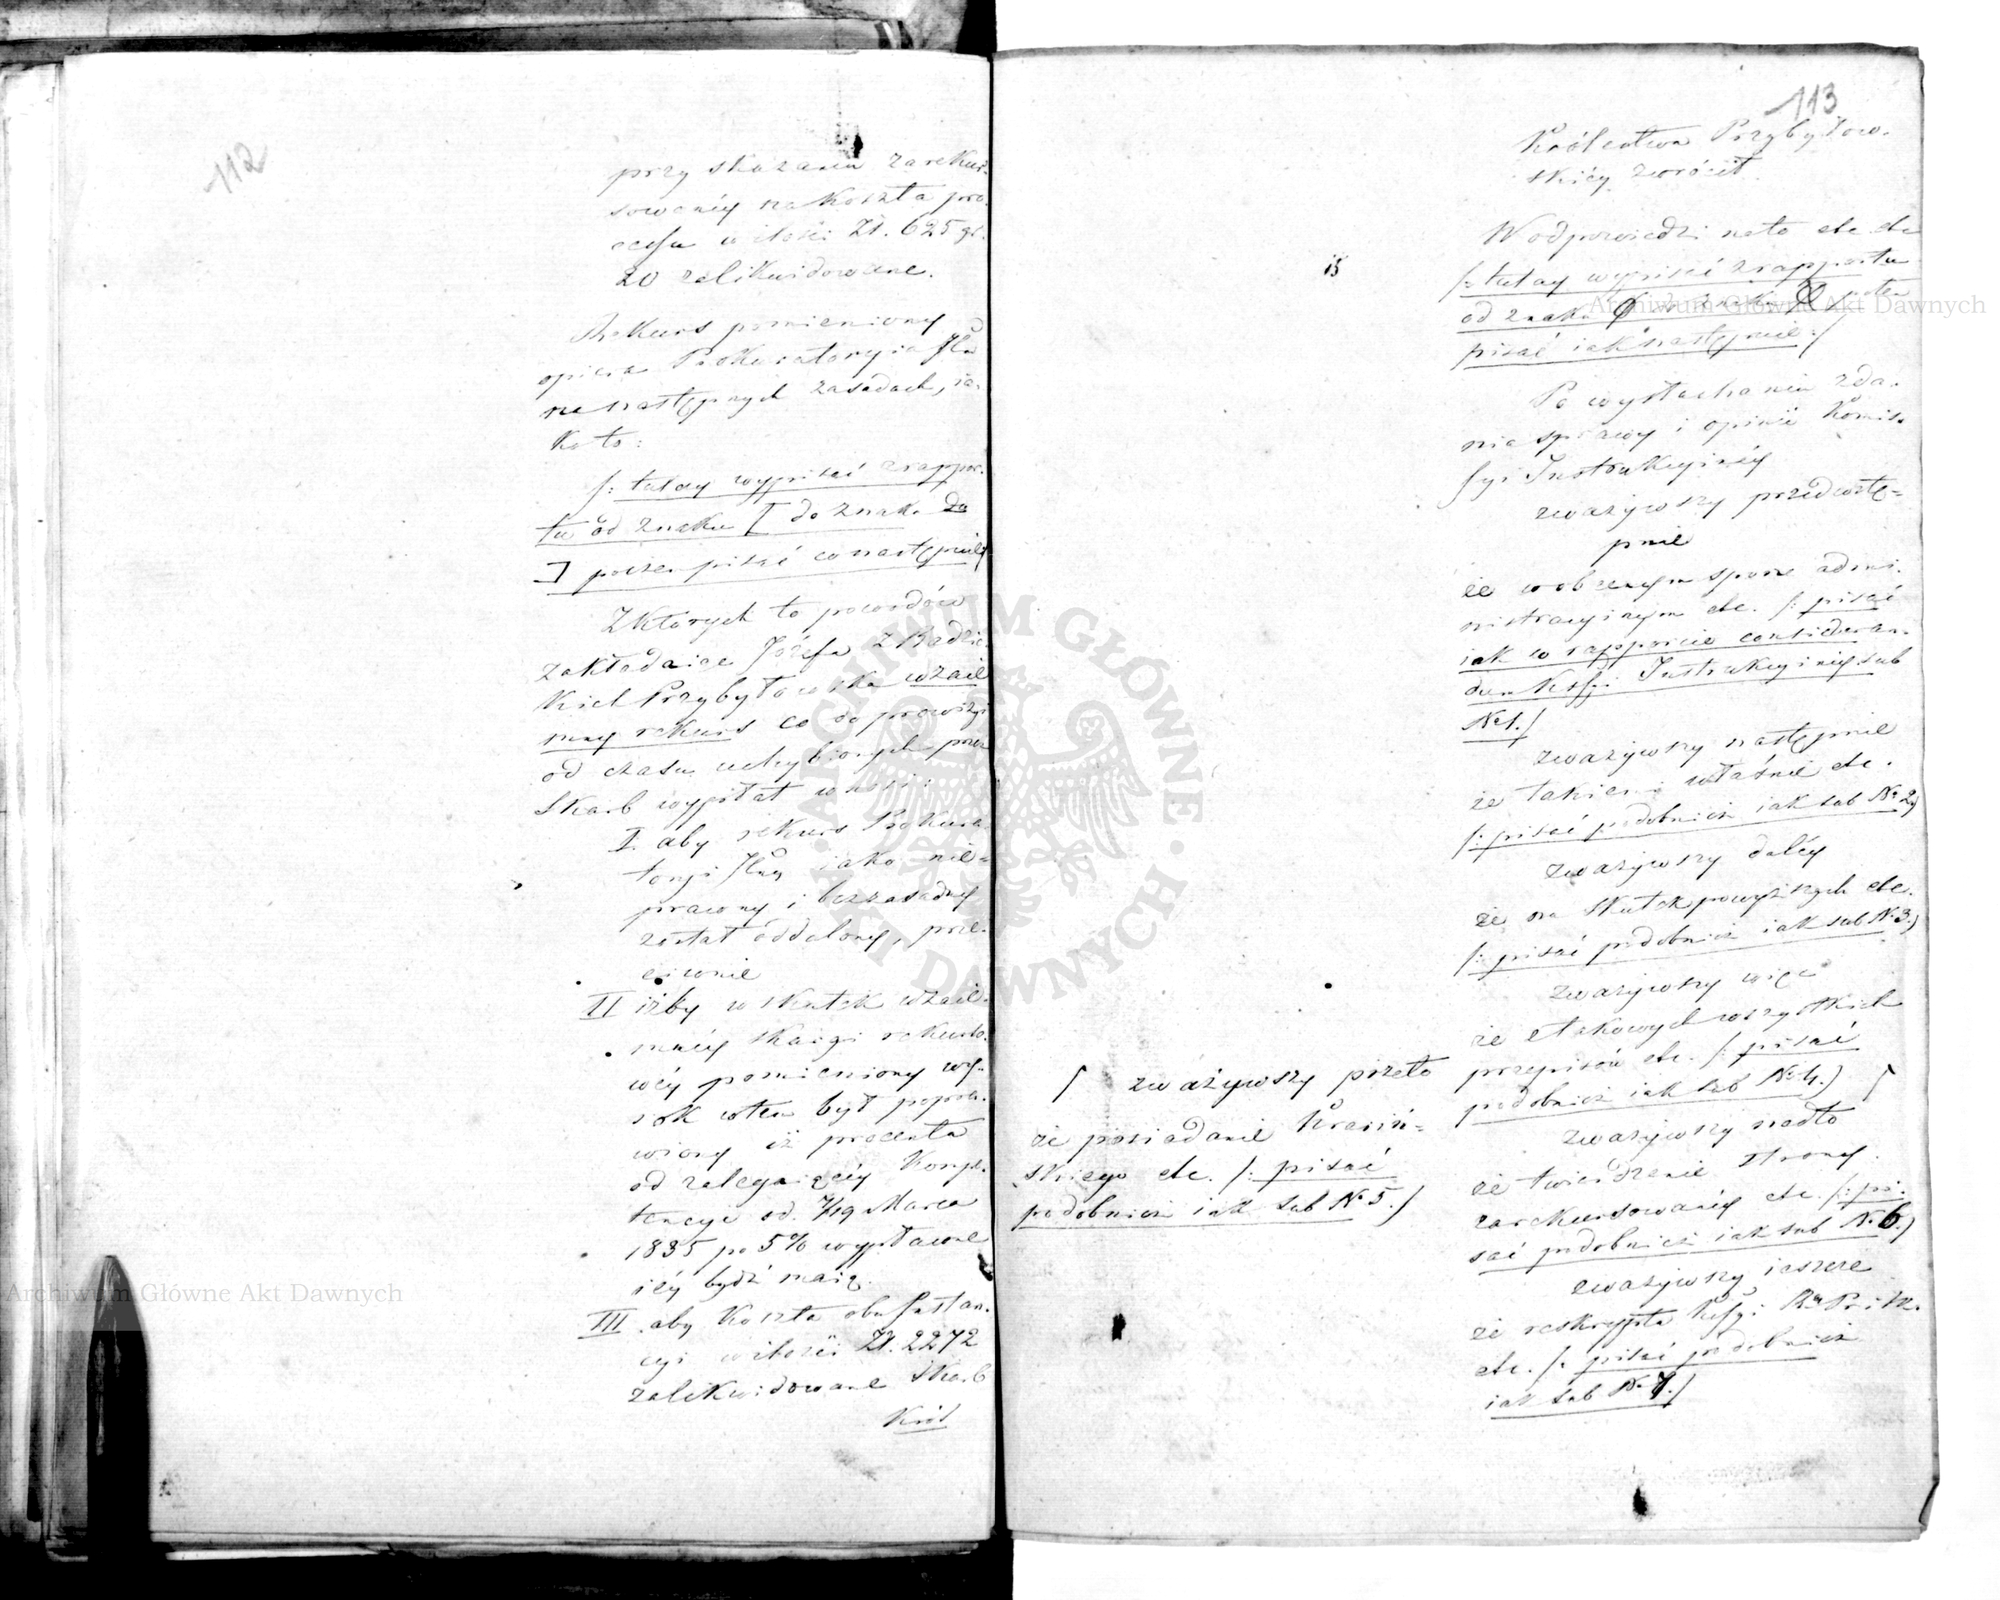 112
przy skazaniu zarekur-
sowanéy na koszta pro-
cessu w ilości Zł. 625 gr.
20 zalikwidowane.
Rekurs pomieniony
opiera Prokuratorya Jlna
na następnych zasadach, ia-
ko to:
/: tutay wypisać z rappor-
tu od znaku [ do znaku
] poczem pisać co następuie :/
Z których to powodów
zakładaiąc Józefa z Radzic-
kich Przybyłowska wzaie-
mny rekurs co do prowizyi
od czasu uchybionych przez
Skarb wypłat wnosi:
I. aby rekurs Prokura-
toryi Jlney jako nie-
prawny i bezzasadny
został oddalony, prze-
ciwnie
II iżby w skutek wzaie-
mnéy skargi rekurso-
wéy pomieniony wy-
rok w tem był popra-
wiony iż procenta
od zalegaiącéy kompe-
tencyi od 7/19 Marca
1835 po 5% wypłacone
iéy bydź maią.
III. aby koszta obu Instan-
cyi w ilości Zł. 2272
zalikwidowane Skarb
Król
113
Królestwa Przybyłow-
skiéy zwrócił.
W odpowiedzi na to etc etc
/: tutay wypisać z rapportu
od znaku do znaku potem
pisać iak następuie :/
Po wysłuchaniu zda-
nia sprawy i opinii Komis-
syi Instrukcyinéy
zważywszy przedwstę-
pnie
że w obecnym sporze admi-
nistracyinym etc. /: pisać
iak w rapporcie consideran-
dum Kssyi Instrukcyinéy sub
No 1. /
zważywszy następnie
że takiem właśnie etc.
/: pisać podobnież iak sub No 2. /
zważywszy daléy
że na skutek powyższych etc.
/: pisać podobnież iak sub N. 3. /
zważywszy więc
że etakowych wszystkich
przepisów etc. /: pisać
podobnież iak sub No 4. /
zważywszy nadto
że twierdzenie strony
zarekursowanéy etc. /: pi-
sać podobnież iak sub N. 6. /
zważywszy ieszcze
że reskrypta Kssyi R. P. i Sk.
etc. /: pisać podobnież
iak sub N. 7. /
zważywszy przeto
że posiadanie Krasiń-
skiego etc. /: pisać
podobnież iak sub No 5. /
Archiwum Główne Akt Dawnych
Archiwum Główne Akt Dawnych
ARCHIWUM GŁÓWNE
AKT DAWNYCH